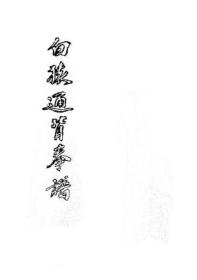 白猿通背拳譜